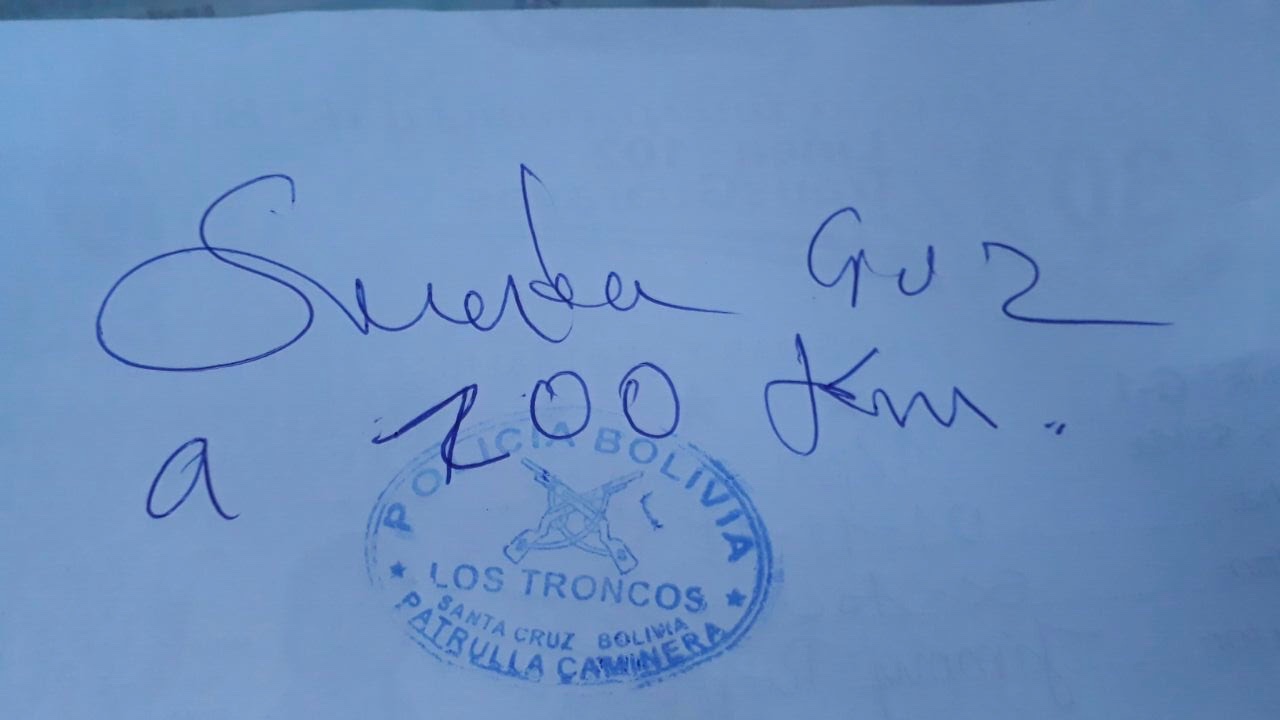 Santa Cruz
a 100 Km.
POLICIA BOLIVIA
LOS TRONCOS
SANTA CRUZ BOLIVIA
PATRULLA CAMINERA